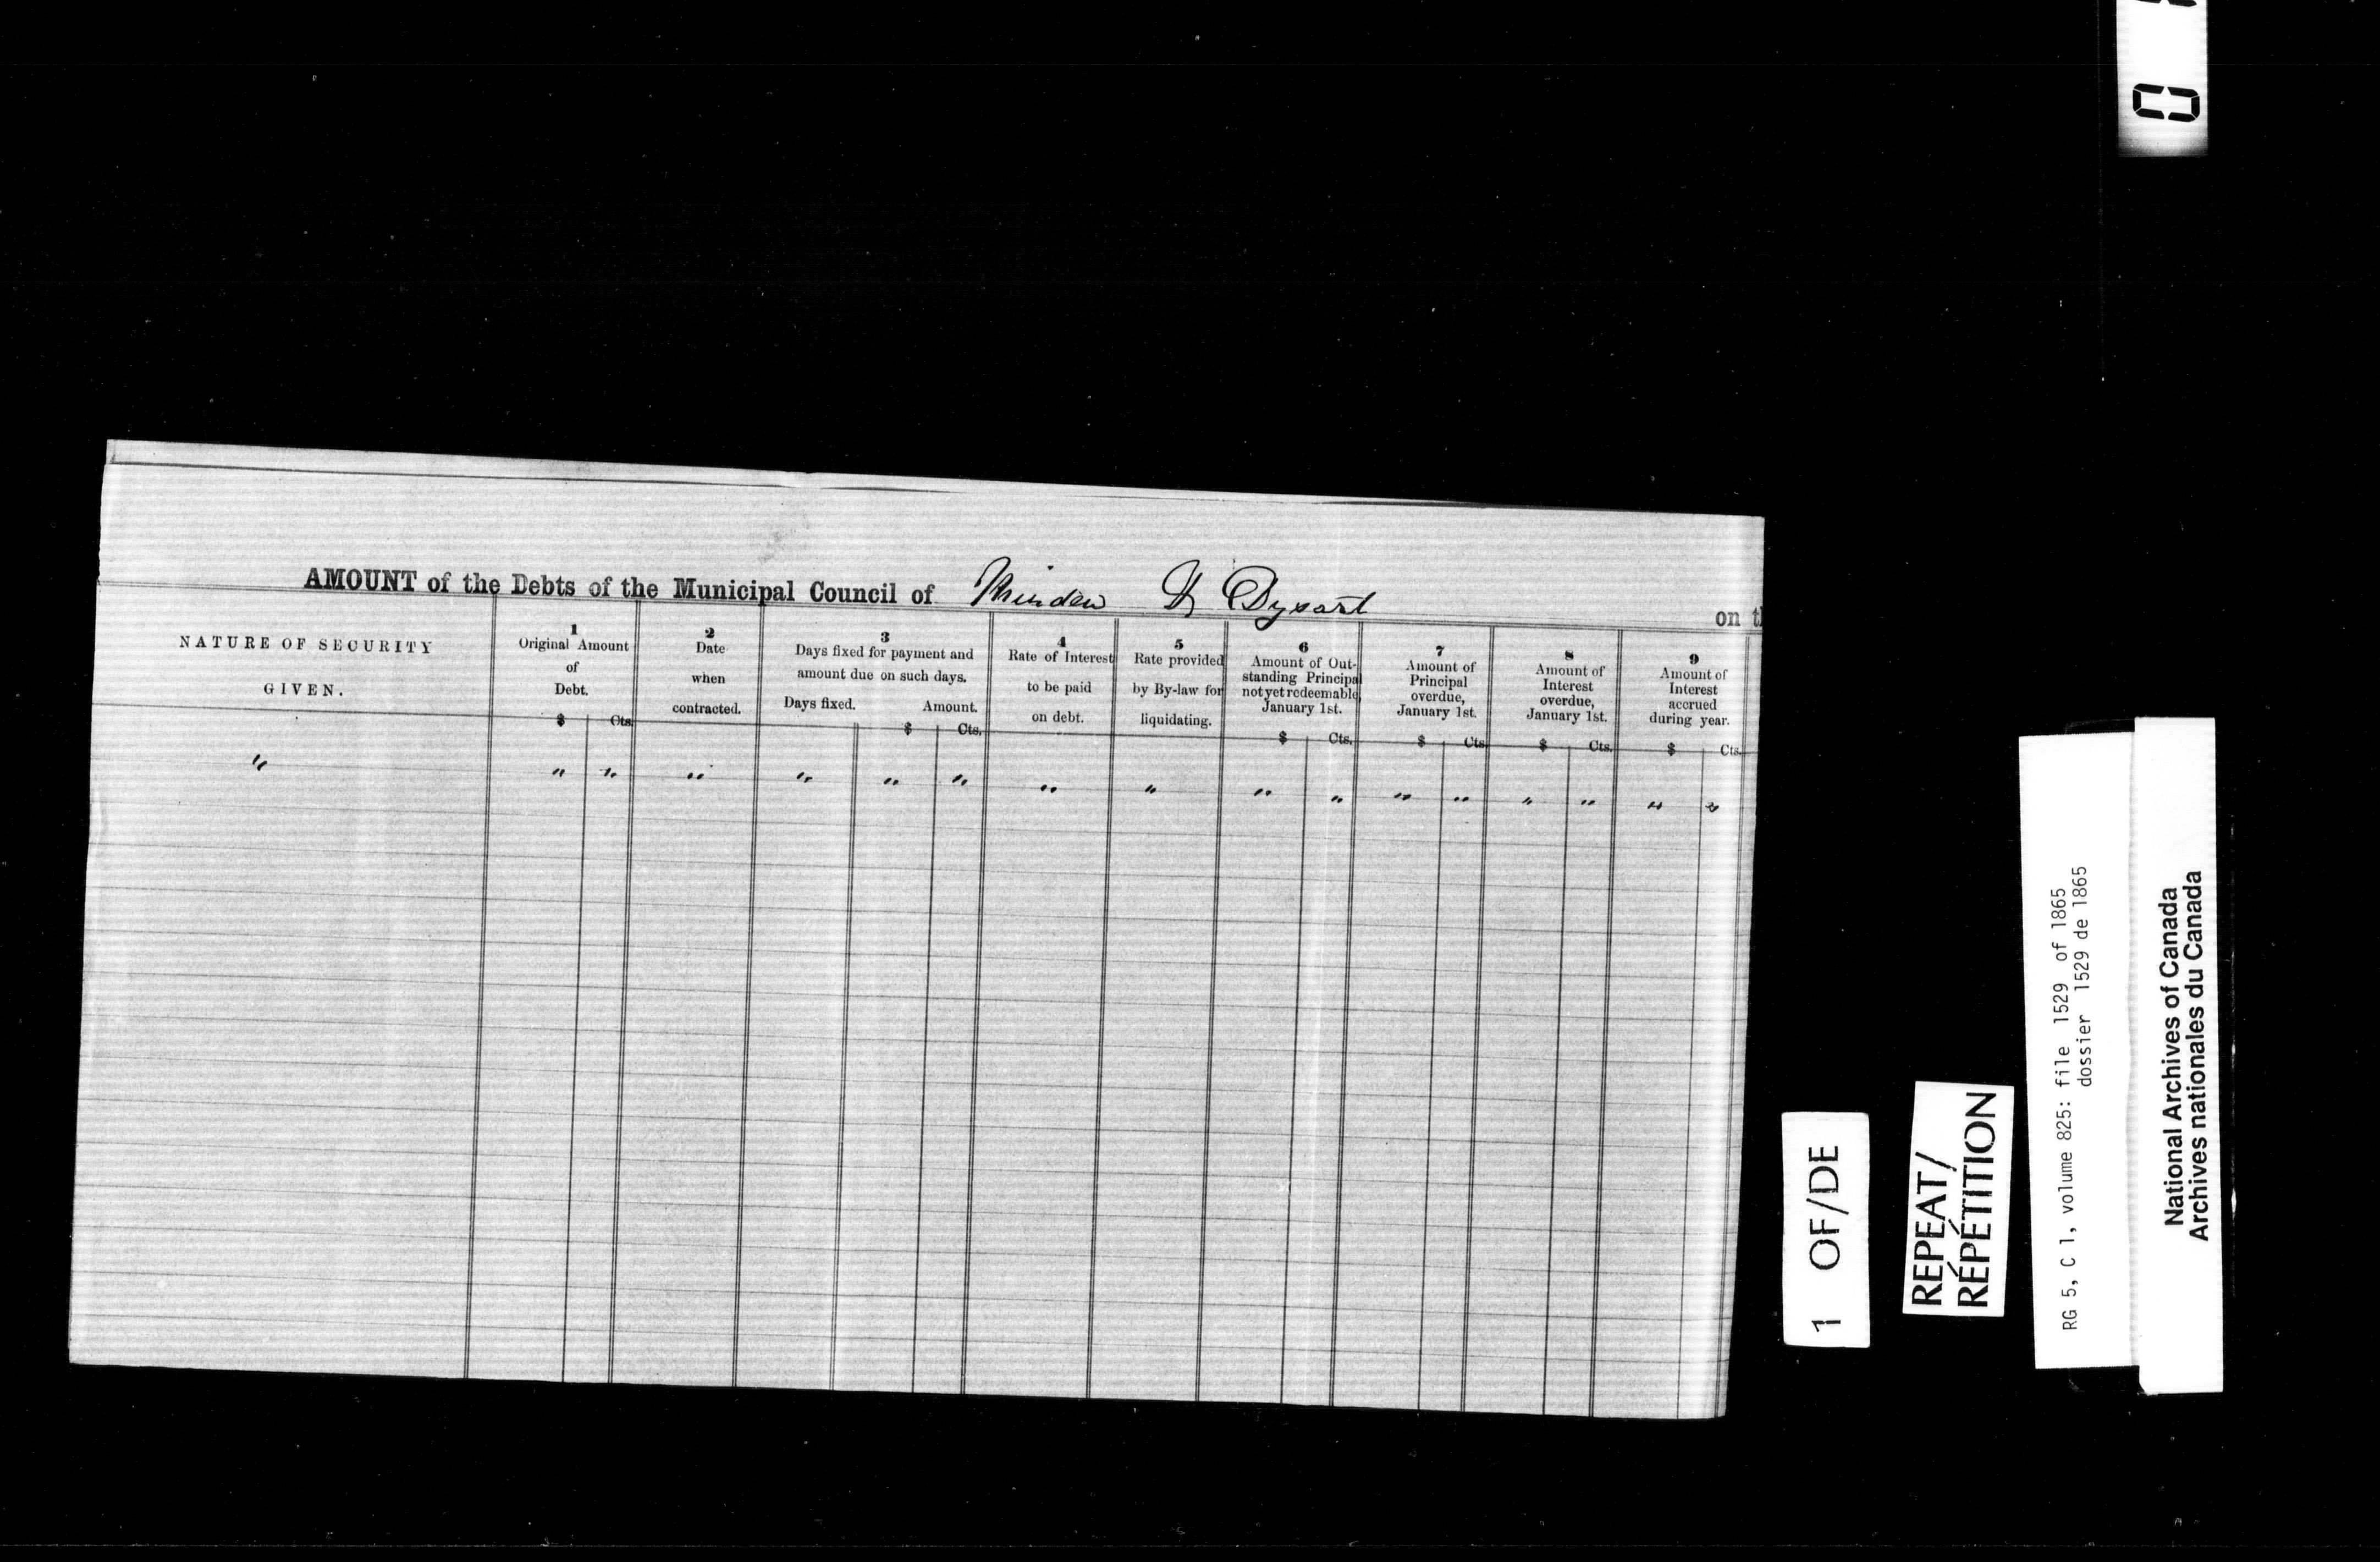 AMOUNT of the Debts of the Municipal Council of Minden & Dysart on th
NATURE OF SECURITY
GIVEN.
1
Original Amount
of
Debt.
$ Cts.
2
Date
when
contracted.
3
Days fixed for payment and
amount due on such days.
Days fixed. Amount.
$ Cts.
4
Rate of Interest
to be paid
on debt.
5
Rate provided
by By-law for
liquidating.
6
Amount of Out-
standing Principal
not yet redeemable,
January 1st.
$ Cts.
7
Amount of
Principal
overdue,
January 1st.
$ Cts.
8
Amount of
Interest
overdue,
January 1st.
$ Cts.
9
Amount of
Interest
accrued
during year.
$ Cts.
" " " " " " " " " " " " " " " " "
1 OF/DE
REPEAT/
RÉPÉTITION
RG 5, C 1, volume 825: file 1529 of 1865
dossier 1529 de 1865
National Archives of Canada
Archives nationales du Canada
0